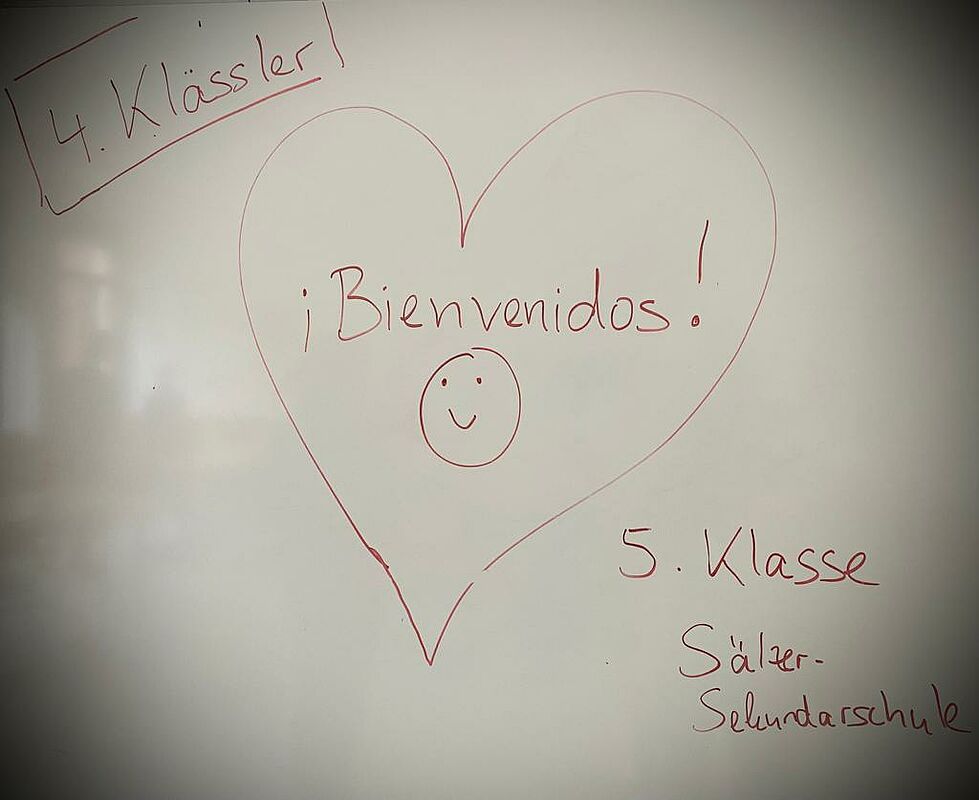 4. Klässler
¡Bienvenidos!
5. Klasse
Sälzer-
Sekundarschule